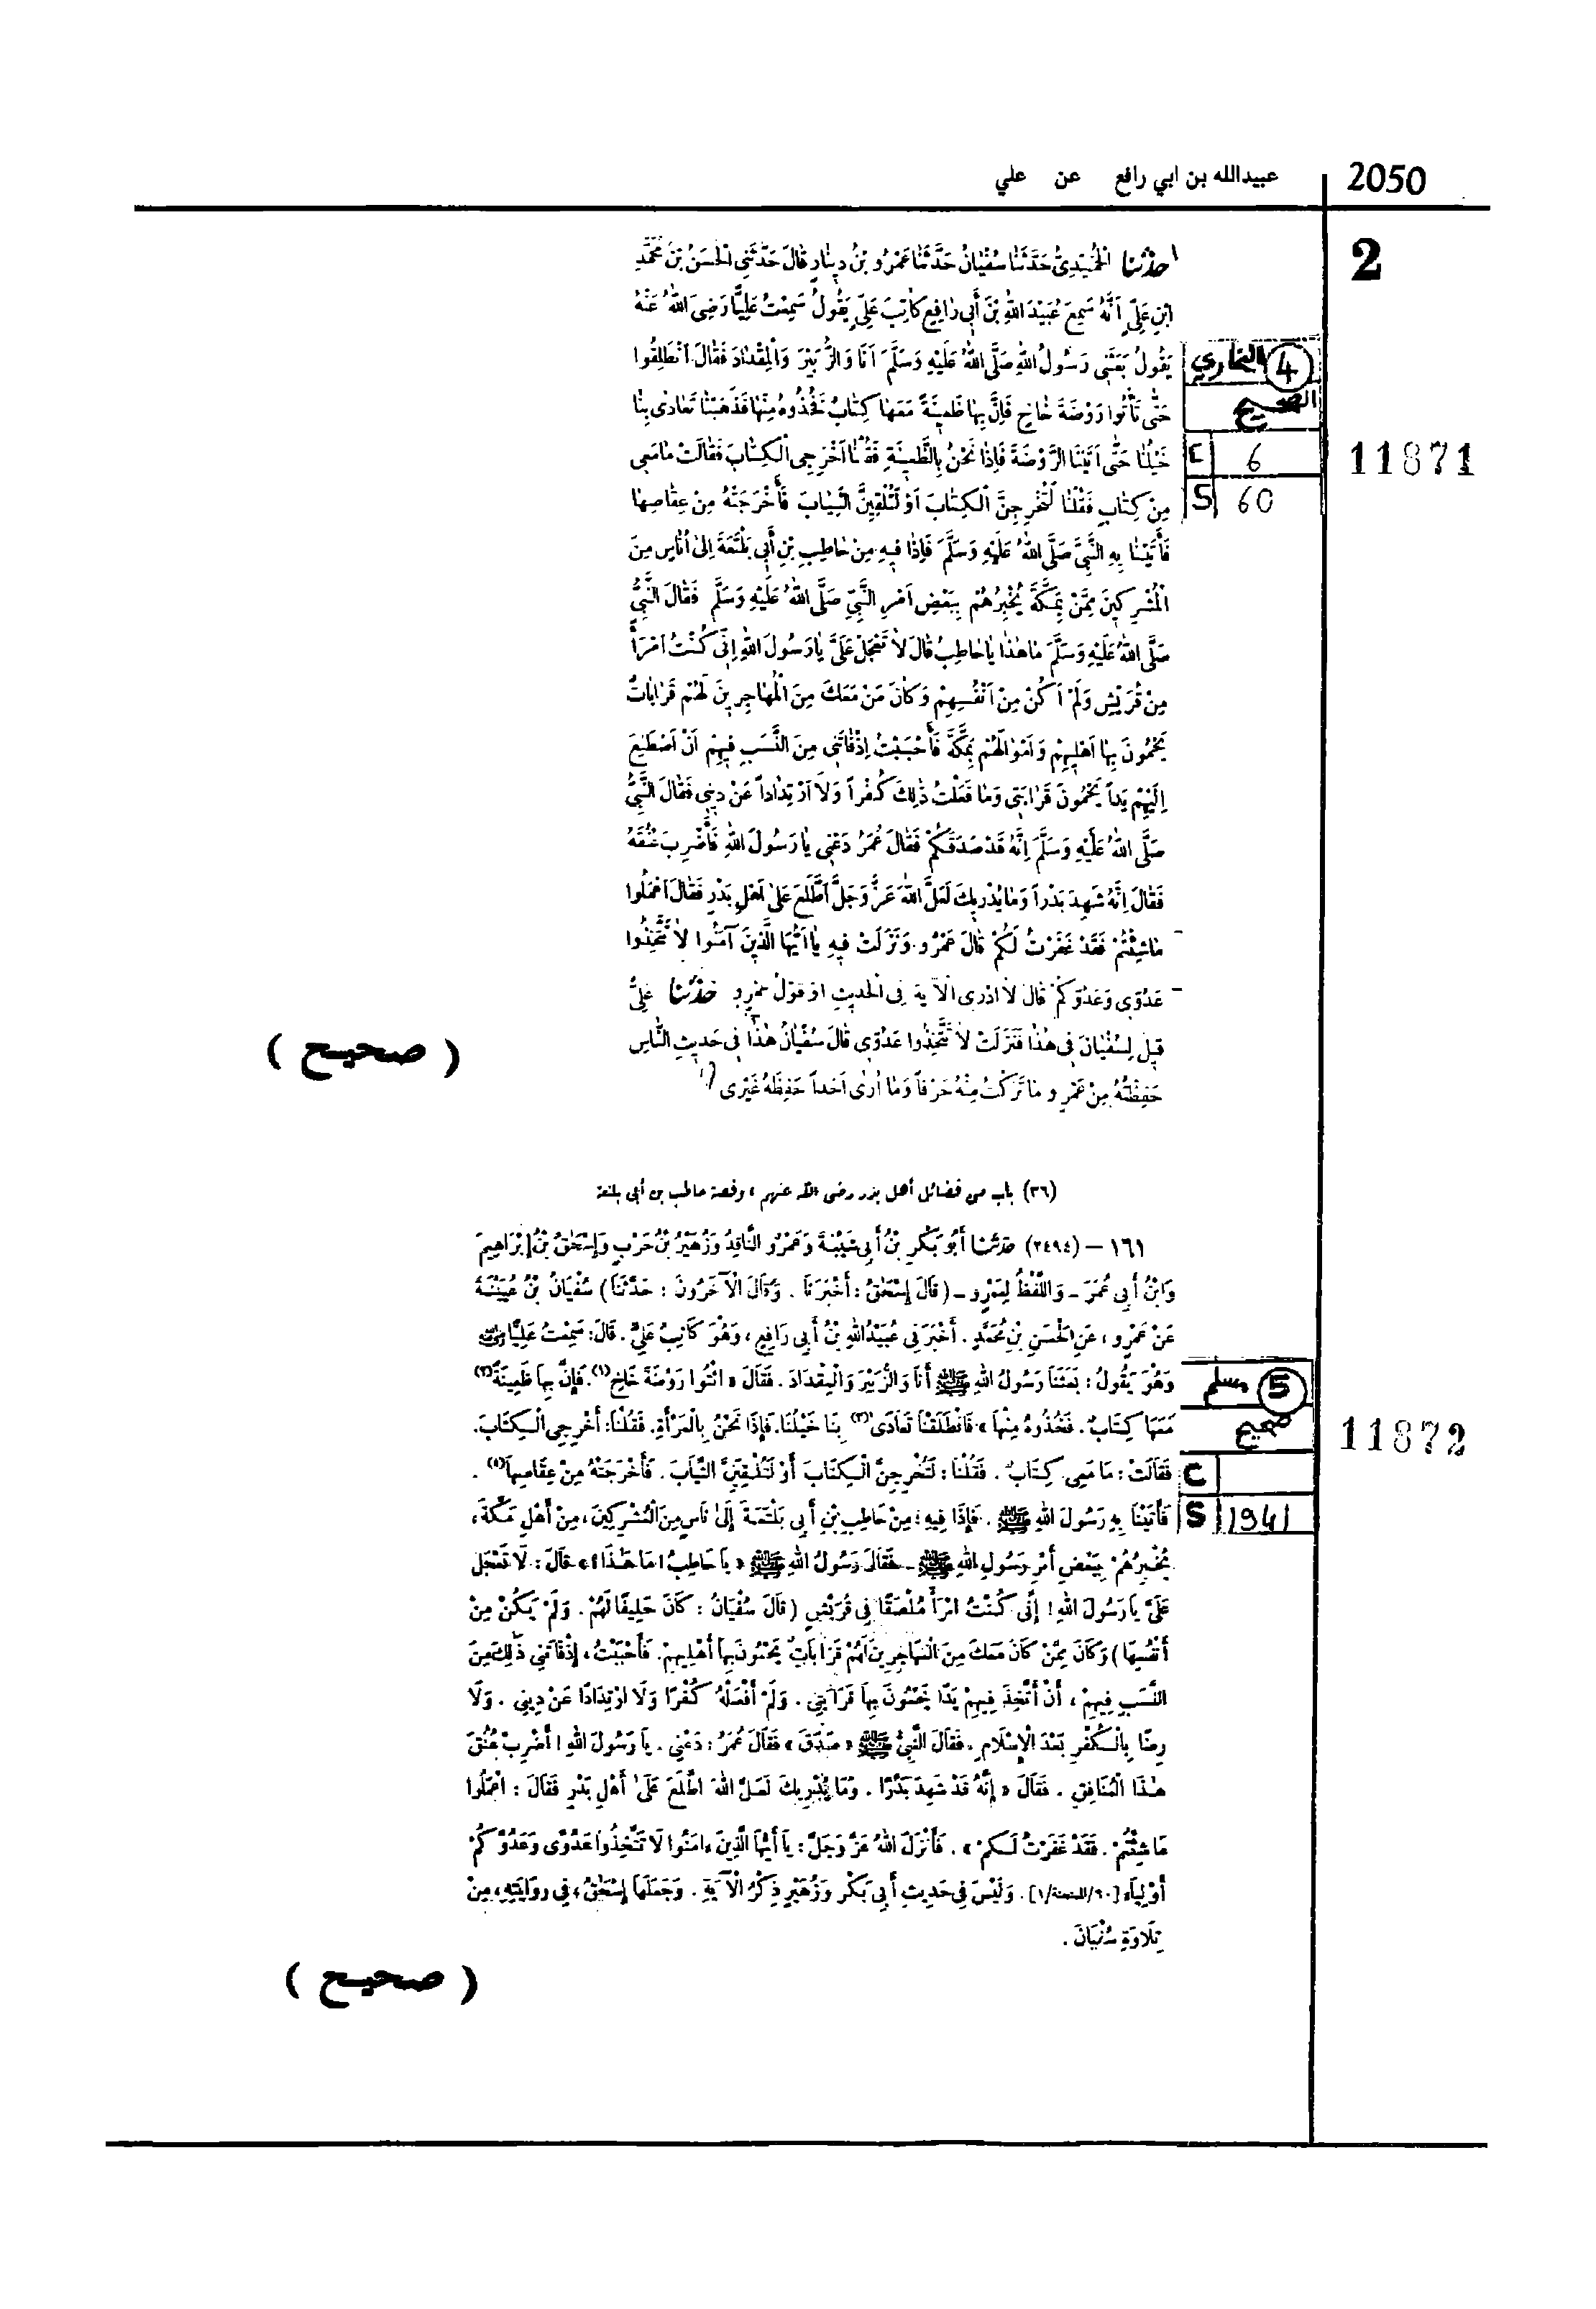 2050
عبيدالله بن ابي رافع عن علي
2
حَدَّثَنَا الْحُمَيْدِيُّ حَدَّثَنَا سُفْيَانُ حَدَّثَنَا عَمْرُو بْنُ دِينَارٍ قَالَ حَدَّثَنِي الْحَسَنُ بْنُ مُحَمَّدِ
ابْنِ عَلِيٍّ أَنَّهُ سَمِعَ عُبَيْدَ اللهِ بْنَ أَبِي رَافِعٍ كَاتِبَ عَلِيٍّ يَقُولُ سَمِعْتُ عَلِيًّا رَضِيَ اللهُ عَنْهُ
يَقُولُ بَعَثَنِي رَسُولُ اللهِ صَلَّى اللهُ عَلَيْهِ وَسَلَّمَ أَنَا وَالزُّبَيْرَ وَالْمِقْدَادَ فَقَالَ انْطَلِقُوا
4 البخاري
حَتَّى تَأْتُوا رَوْضَةَ خَاخٍ فَإِنَّ بِهَا ظَعِينَةً مَعَهَا كِتَابٌ فَخُذُوهُ مِنْهَا فَذَهَبْنَا تَعَادَى بِنَا
الصحيح
خَيْلُنَا حَتَّى أَتَيْنَا الرَّوْضَةَ فَإِذَا نَحْنُ بِالظَّعِينَةِ فَقُلْنَا أَخْرِجِي الْكِتَابَ فَقَالَتْ مَا مَعِي
C 6
11871
مِنْ كِتَابٍ فَقُلْنَا لَتُخْرِجِنَّ الْكِتَابَ أَوْ لَتُلْقِيَنَّ الثِّيَابَ فَأَخْرَجَتْهُ مِنْ عِقَاصِهَا
S 60
فَأَتَيْنَا بِهِ النَّبِيَّ صَلَّى اللهُ عَلَيْهِ وَسَلَّمَ فَإِذَا فِيهِ مِنْ حَاطِبِ بْنِ أَبِي بَلْتَعَةَ إِلَى أُنَاسٍ مِنَ
الْمُشْرِكِينَ مِمَّنْ بِمَكَّةَ يُخْبِرُهُمْ بِبَعْضِ أَمْرِ النَّبِيِّ صَلَّى اللهُ عَلَيْهِ وَسَلَّمَ فَقَالَ النَّبِيُّ
صَلَّى اللهُ عَلَيْهِ وَسَلَّمَ مَا هٰذَا يَا حَاطِبُ قَالَ لَا تَعْجَلْ عَلَيَّ يَا رَسُولَ اللهِ إِنِّي كُنْتُ امْرَأً
مِنْ قُرَيْشٍ وَلَمْ أَكُنْ مِنْ أَنْفُسِهِمْ وَكَانَ مَنْ مَعَكَ مِنَ الْمُهَاجِرِينَ لَهُمْ قَرَابَاتٌ
يَحْمُونَ بِهَا أَهْلِيهِمْ وَأَمْوَالَهُمْ بِمَكَّةَ فَأَحْبَبْتُ إِذْ فَاتَنِي مِنَ النَّسَبِ فِيهِمْ أَنْ أَصْطَنِعَ
إِلَيْهِمْ يَدًا يَحْمُونَ قَرَابَتِي وَمَا فَعَلْتُ ذٰلِكَ كُفْرًا وَلَا ارْتِدَادًا عَنْ دِينِي فَقَالَ النَّبِيُّ
صَلَّى اللهُ عَلَيْهِ وَسَلَّمَ إِنَّهُ قَدْ صَدَقَكُمْ فَقَالَ عُمَرُ دَعْنِي يَا رَسُولَ اللهِ فَأَضْرِبَ عُنُقَهُ
فَقَالَ إِنَّهُ شَهِدَ بَدْرًا وَمَا يُدْرِيكَ لَعَلَّ اللهَ عَزَّ وَجَلَّ اطَّلَعَ عَلَى أَهْلِ بَدْرٍ فَقَالَ اعْمَلُوا
مَا شِئْتُمْ فَقَدْ غَفَرْتُ لَكُمْ قَالَ عَمْرٌو وَنَزَلَتْ فِيهِ يَا أَيُّهَا الَّذِينَ آمَنُوا لَا تَتَّخِذُوا
عَدُوِّي وَعَدُوَّكُمْ قَالَ لَا أَدْرِي الْآيَةَ فِي الْحَدِيثِ أَوْ قَوْلُ عَمْرٍو حَدَّثَنَا عَلِيٌّ
قِيلَ لِسُفْيَانَ فِي هٰذَا فَنَزَلَتْ لَا تَتَّخِذُوا عَدُوِّي قَالَ سُفْيَانُ هٰذَا فِي حَدِيثِ النَّاسِ
( صحيح )
حَفِظْتُهُ مِنْ عَمْرٍو مَا تَرَكْتُ مِنْهُ حَرْفًا وَمَا أُرَى أَحَدًا حَفِظَهُ غَيْرِي
(٣٦) باب من فضائل أهل بدر رضى الله عنهم ، وقصة حاطب بن أبى بلتعة
١٦١ – (٢٤٩٤) حَدَّثَنَا أَبُو بَكْرِ بْنُ أَبِي شَيْبَةَ وَعَمْرٌو النَّاقِدُ وَزُهَيْرُ بْنُ حَرْبٍ وَإِسْحَاقُ بْنُ إِبْرَاهِيمَ
وَابْنُ أَبِي عُمَرَ – وَاللَّفْظُ لِعَمْرٍو – (قَالَ إِسْحَاقُ : أَخْبَرَنَا . وَقَالَ الْآخَرُونَ : حَدَّثَنَا) سُفْيَانُ بْنُ عُيَيْنَةَ
عَنْ عَمْرٍو ، عَنِ الْحَسَنِ بْنِ مُحَمَّدٍ . أَخْبَرَنِي عُبَيْدُ اللهِ بْنُ أَبِي رَافِعٍ ، وَهُوَ كَاتِبُ عَلِيٍّ . قَالَ : سَمِعْتُ عَلِيًّا رضي الله عنه
وَهُوَ يَقُولُ : بَعَثَنَا رَسُولُ اللهِ ﷺ أَنَا وَالزُّبَيْرَ وَالْمِقْدَادَ . فَقَالَ « ائْتُوا رَوْضَةَ خَاخٍ(١) . فَإِنَّ بِهَا ظَعِينَةً(٢)
5 مسلم
مَعَهَا كِتَابٌ . فَخُذُوهُ مِنْهَا » فَانْطَلَقْنَا تَعَادَى(٣) بِنَا خَيْلُنَا . فَإِذَا نَحْنُ بِالْمَرْأَةِ . فَقُلْنَا : أَخْرِجِي الْكِتَابَ .
صحيح
11872
فَقَالَتْ : مَا مَعِي كِتَابٌ . فَقُلْنَا : لَتُخْرِجِنَّ الْكِتَابَ أَوْ لَتُلْقِيَنَّ الثِّيَابَ . فَأَخْرَجَتْهُ مِنْ عِقَاصِهَا .
C
فَأَتَيْنَا بِهِ رَسُولَ اللهِ ﷺ . فَإِذَا فِيهِ : مِنْ حَاطِبِ بْنِ أَبِي بَلْتَعَةَ إِلَى نَاسٍ مِنَ الْمُشْرِكِينَ ، مِنْ أَهْلِ مَكَّةَ ،
S 1941
يُخْبِرُهُمْ بِبَعْضِ أَمْرِ رَسُولِ اللهِ ﷺ . فَقَالَ رَسُولُ اللهِ ﷺ « يَا حَاطِبُ ! مَا هٰذَا ؟ » قَالَ : لَا تَعْجَلْ
عَلَيَّ يَا رَسُولَ اللهِ ! إِنِّي كُنْتُ امْرَأً مُلْصَقًا فِي قُرَيْشٍ (قَالَ سُفْيَانُ : كَانَ حَلِيفًا لَهُمْ . وَلَمْ يَكُنْ مِنْ
أَنْفُسِهَا) وَكَانَ مِمَّنْ كَانَ مَعَكَ مِنَ الْمُهَاجِرِينَ لَهُمْ قَرَابَاتٌ يَحْمُونَ بِهَا أَهْلِيهِمْ . فَأَحْبَبْتُ ، إِذْ فَاتَنِي ذٰلِكَ مِنَ
النَّسَبِ فِيهِمْ ، أَنْ أَتَّخِذَ فِيهِمْ يَدًا يَحْمُونَ بِهَا قَرَابَتِي . وَلَمْ أَفْعَلْهُ كُفْرًا وَلَا ارْتِدَادًا عَنْ دِينِي . وَلَا
رِضًا بِالْكُفْرِ بَعْدَ الْإِسْلَامِ . فَقَالَ النَّبِيُّ ﷺ « صَدَقَ » فَقَالَ عُمَرُ : دَعْنِي . يَا رَسُولَ اللهِ ! أَضْرِبْ عُنُقَ
هٰذَا الْمُنَافِقِ . فَقَالَ « إِنَّهُ قَدْ شَهِدَ بَدْرًا . وَمَا يُدْرِيكَ لَعَلَّ اللهَ اطَّلَعَ عَلَى أَهْلِ بَدْرٍ فَقَالَ : اعْمَلُوا
مَا شِئْتُمْ . فَقَدْ غَفَرْتُ لَكُمْ » . فَأَنْزَلَ اللهُ عَزَّ وَجَلَّ : يَا أَيُّهَا الَّذِينَ ءامَنُوا لَا تَتَّخِذُوا عَدُوِّي وَعَدُوَّكُمْ
أَوْلِيَاءَ [٦٠/الممتحنة/١] . وَلَيْسَ فِي حَدِيثِ أَبِي بَكْرٍ وَزُهَيْرٍ ذِكْرُ الْآيَةِ . وَجَعَلَهَا إِسْحَاقُ ، فِي رِوَايَتِهِ ، مِنْ
تِلَاوَةِ سُفْيَانَ .
( صحيح )